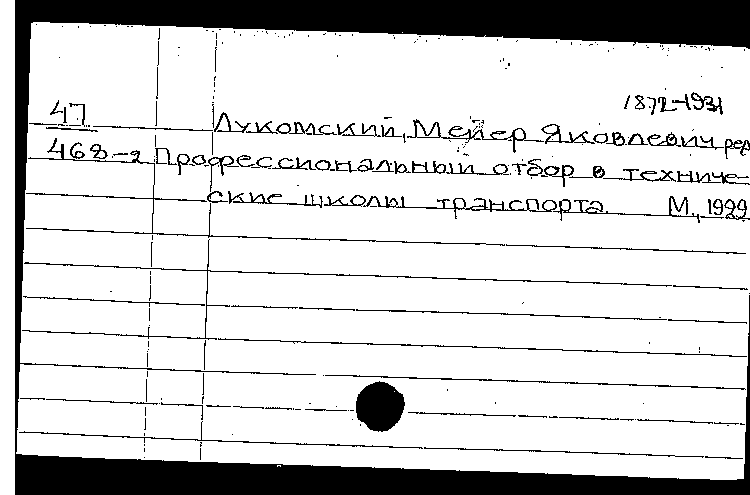 1872-1931
47 Лукомский, Мейер Яковлевич ред
468-2 Профессиональный отбор в техниче-
ские школы транспорта. М., 1922